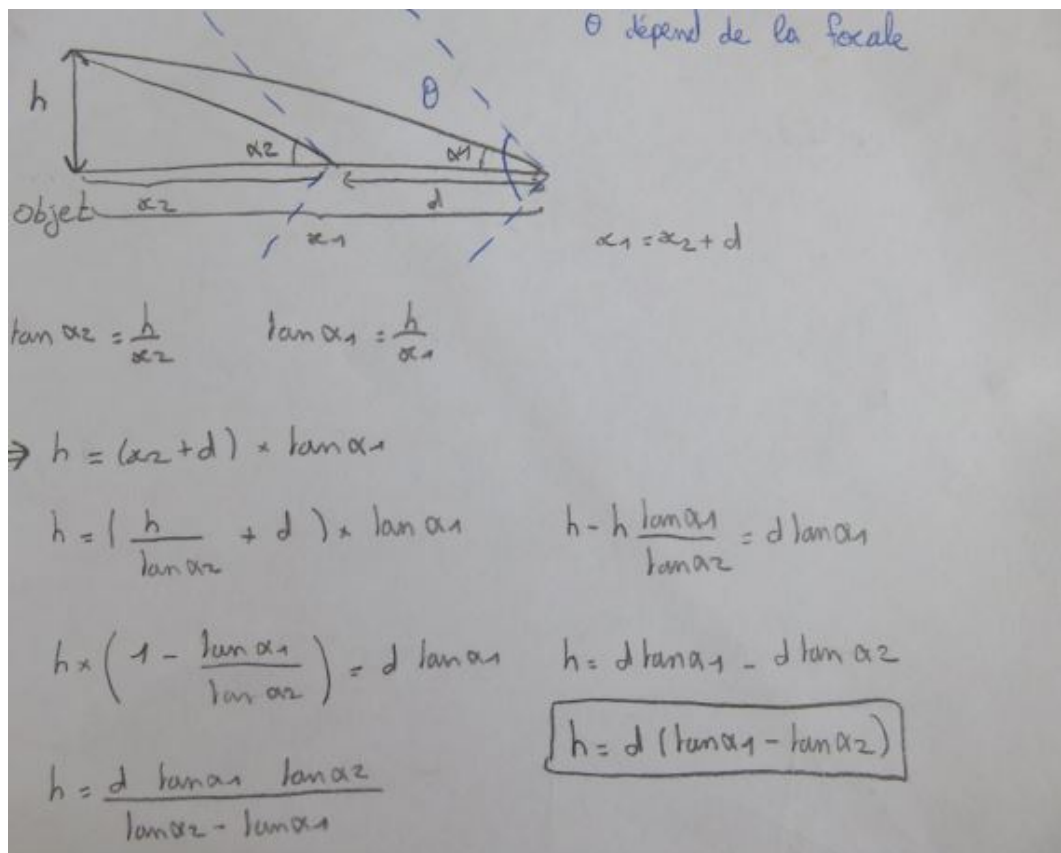 θ dépend de la focale
h
θ
α2
α1
x2
d
Objet
x1
x1 = x2 + d
tan α2 = h/x2
tan α1 = h/x1
⇒ h = (x2 + d) × tan α1
h = ( h/tan α2 + d ) × tan α1
h - h tan α1/tan α2 = d tan α1
h × ( 1 - tan α1/tan α2 ) = d tan α1
h = d tan α1 - d tan α2
h = d (tan α1 - tan α2)
h = d tan α1 tan α2 / tan α2 - tan α1